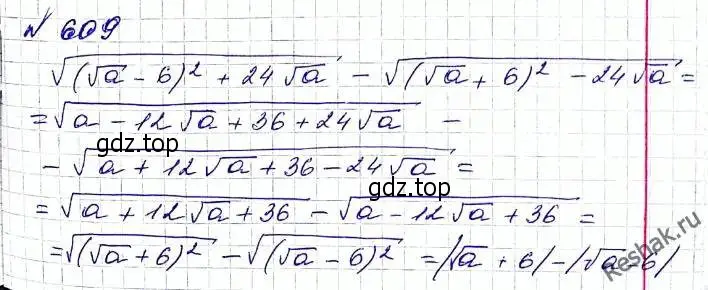 № 609
√((√a - 6)² + 24√a) - √((√a + 6)² - 24√a) =
= √(a - 12√a + 36 + 24√a) -
gdz.top
- √(a + 12√a + 36 - 24√a) =
gdz.top
= √(a + 12√a + 36) - √(a - 12√a + 36) =
= √((√a + 6)²) - √((√a - 6)²) = |√a + 6| - |√a - 6|
Reshak.ru